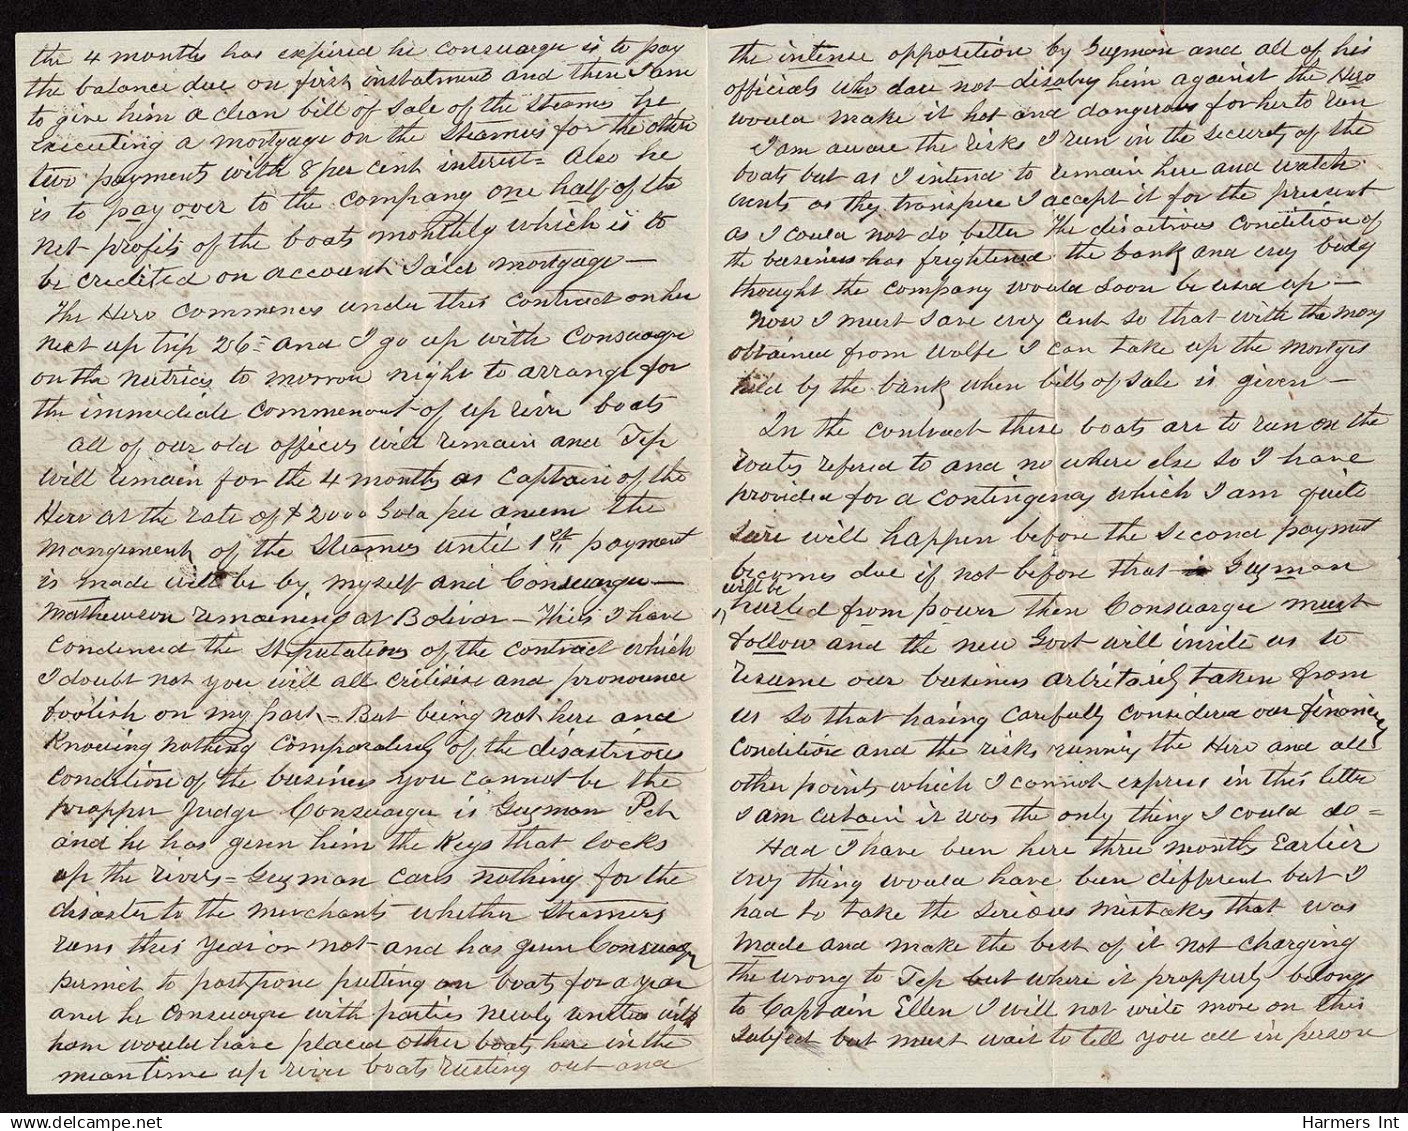 the 4 months has expired he Consuargu is to pay
the balance due on first instalment and then I am
to give him a clean bill of sale of the Steams he
executing a mortgage on the Steamers for the other
two payments with 8 per cent interest = Also he
is to pay over to the company one half of the
net profits of the boats monthly which is to
be credited on account said mortgage —
The Hero commences under this contract on her
next up trip 26 = and I go up with Consuargu
on the Nutrias to morrow night to arrange for
the immediate commencement of up river boats
All of our old officers will remain and Tip
will remain for the 4 months as Captain of the
Hero at the rate of $2000 Gold per annum The
Mangement of the Steamers until 1st payment
is made will be by myself and Consuargu —
Mathewson remaining at Bolivar — This I have
Condenced the Stipulations of the contract which
I doubt not you will all critisise and pronounce
foolish on my part — But being not here and
Knowing nothing comparatively of the disastrious
condition of the business you cannot be the
propper Judge Consuargu is Guzman Pet
and he has given him the Keys that locks
up the rivers = Guzman cares nothing for the
disaster to the merchants whether Steamers
runs this year or not and has given Consuargu
permit to postpone putting on boats for a year
and he Consuargu with parties newly united with
ham would have placed other boats here in the
meantime up river boats rusting out and
the intense opposition by Guzman and all of his
officials who dare not disobey him against the Hero
would make it hot and dangerous for her to run
I am aware the risks I run in the security of the
boats but as I intend to remain here and watch
events as they transpire I accept it for the present
as I could not do better The disastrous condition of
the business has frightened the bank and evry body
thought the company would soon be used up —
Now I must save evry cent so that with the mony
obtained from Wolfe I can take up the Mortges
held by the bank when bills of sale is given —
In the contract these boats are to run on the
routes refered to and no where else so I have
provided for a contingency which I am quite
sure will happen before the second payment
becomes due if not before that is Guzman
will be
hurled from power then Consuargu must
follow and the new Govt will invite us to
resume our business arbitrarily taken from
us so that having carefully considered our financiel
condition and the risks running the Hero and all
other points which I cannot express in this letter
I am certain it was the only thing I could do =
Had I have been here three months Earlier
evry thing would have been different but I
had to take the serious mistakes that was
made and make the best of it not charging
the wrong to Tip but where it propperly belongs
to Captain Ellen I will not write more on this
subject but must wait to tell you all in person
Harmers Int